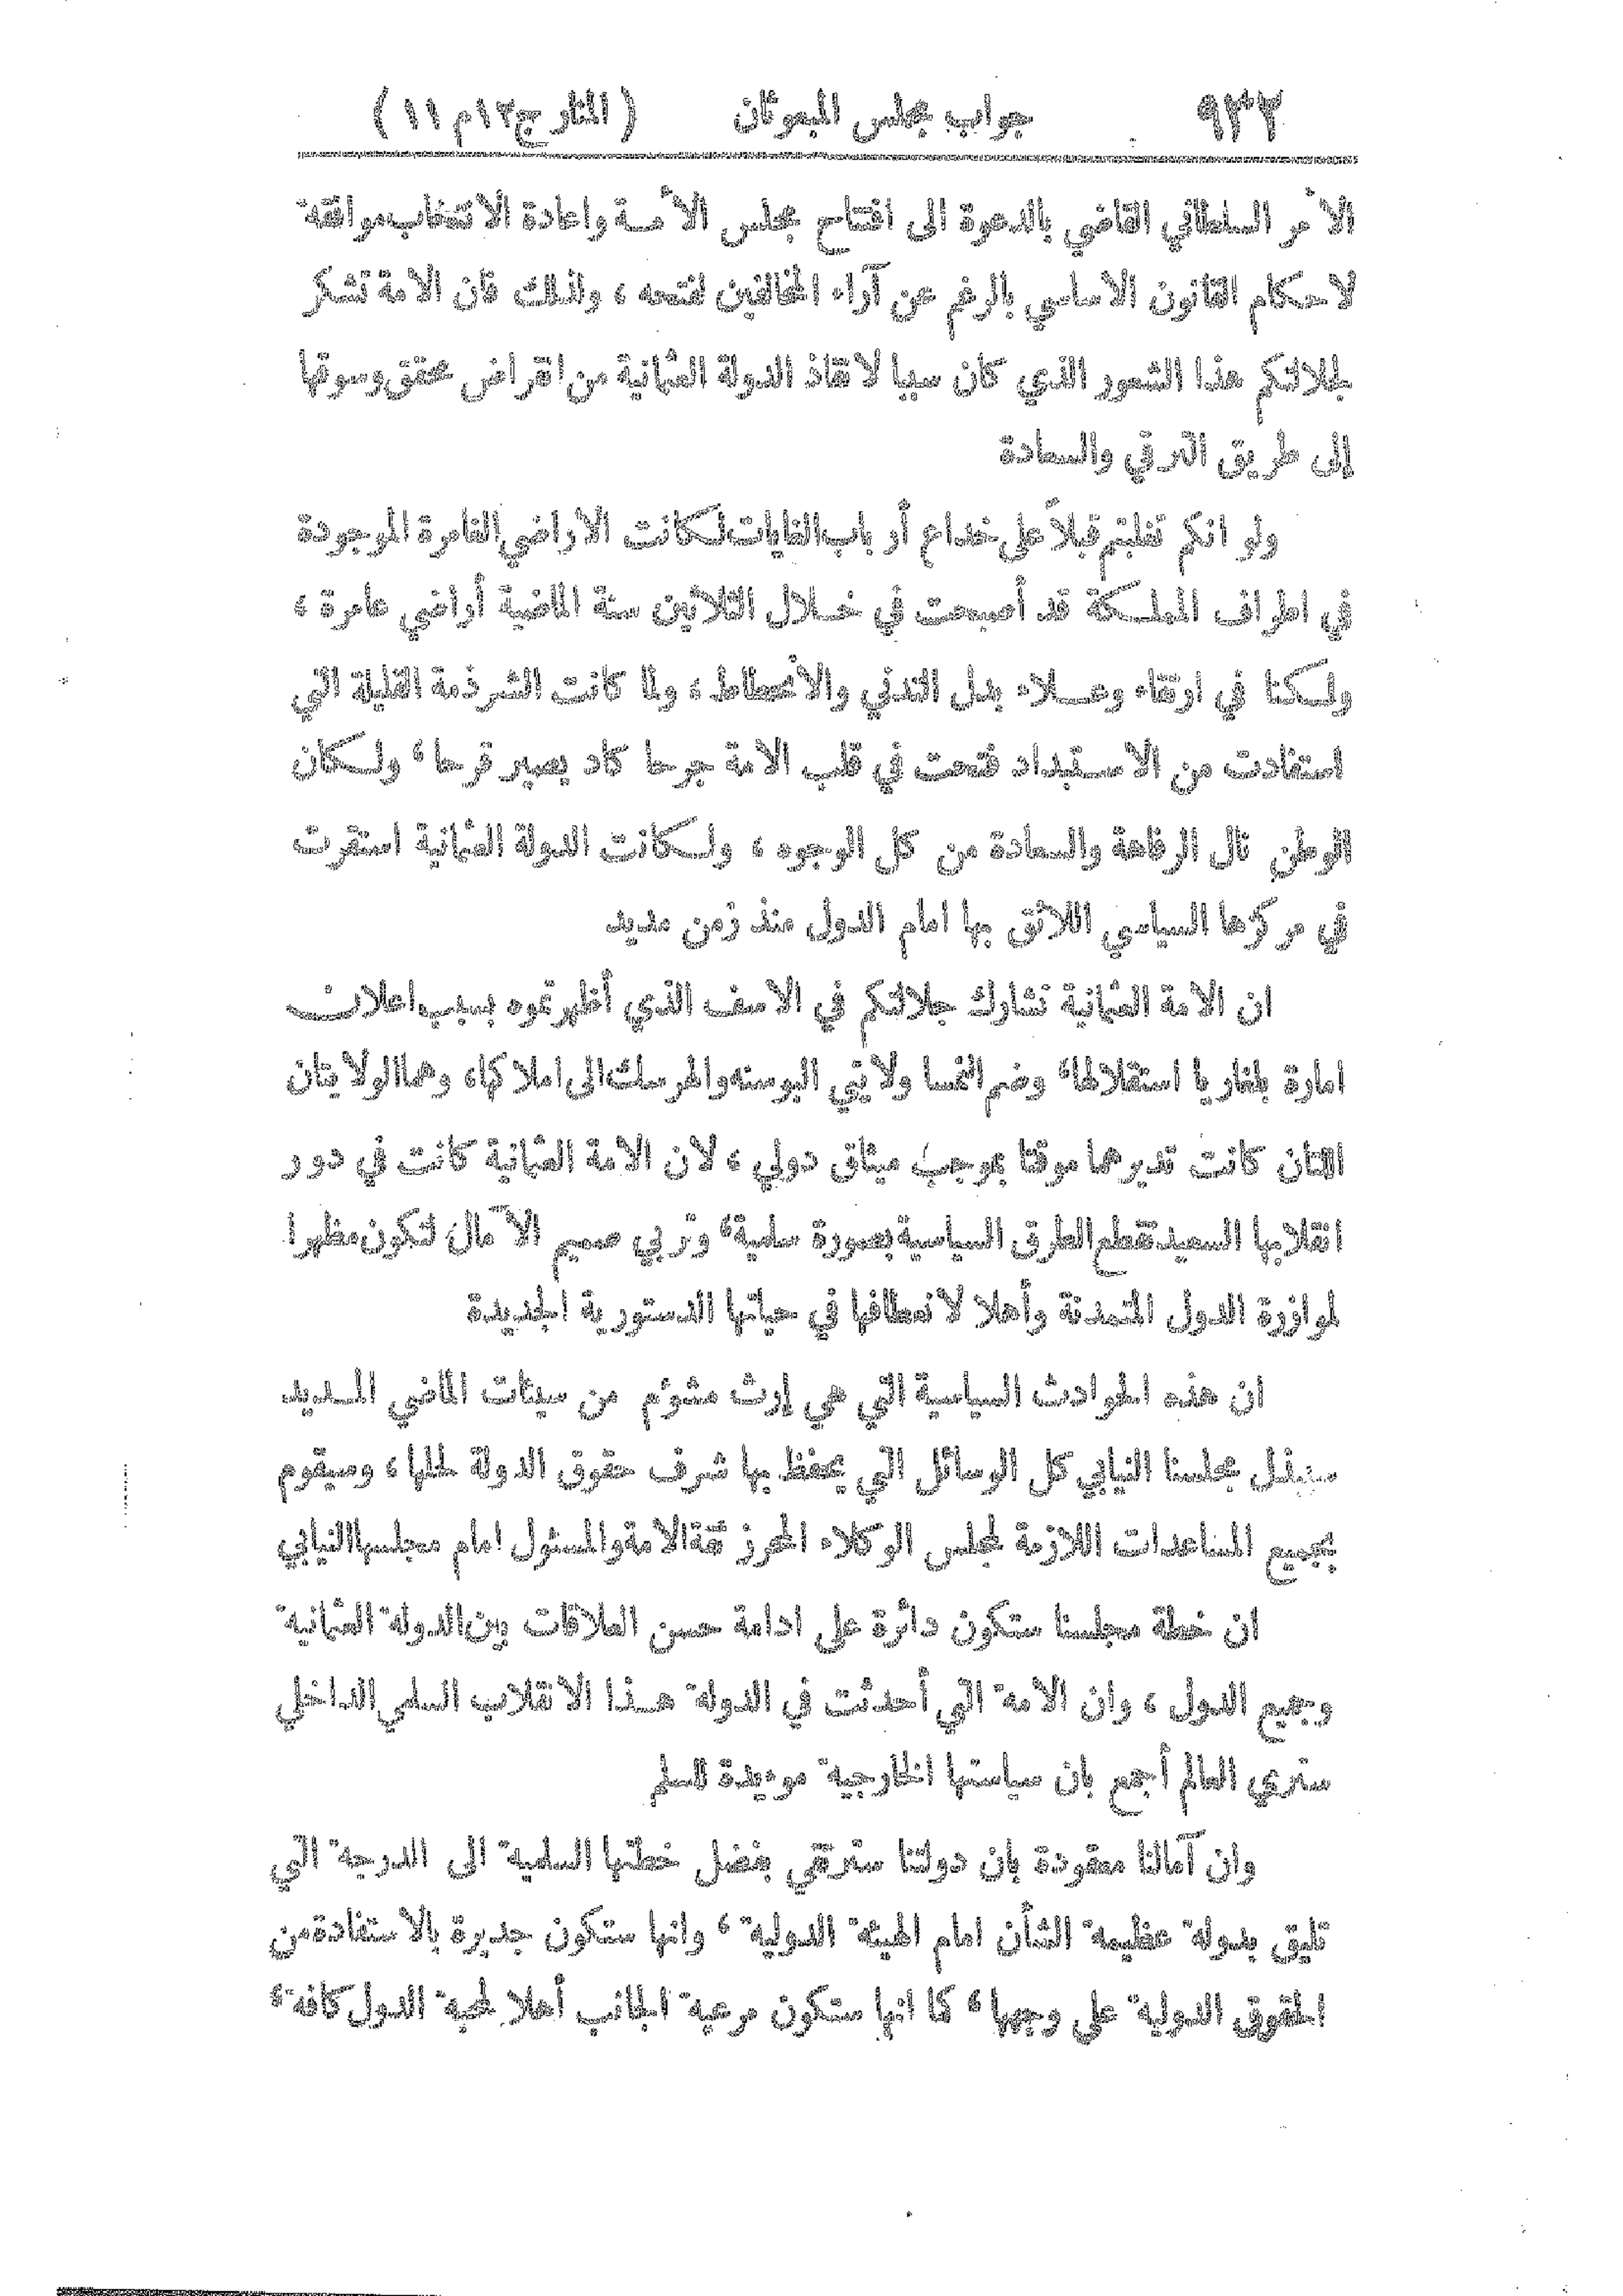 ٩٣٢ جواب مجلس المبعوثان ( المنار ج١٢م ١١ )
الأمر السلطاني القاضي بالدعوة الى افتتاح مجلس الأمـة واعادة الانتخاب موافقة
لاحكام القانون الاساسي بالرغم عن آراء المخالفين لفتحه ، ولذلك فان الامة تشكر
لجلالتكم هذا الشعور الذي كان سببا لانقاذ الدولة العثمانية من انقراض محقق وسوقها
إلى طريق الترقي والسعادة
ولو انكم تغلبتم قبلاً على خداع أرباب الغايات لكانت الاراضي الغامرة الموجودة
في اطراف المملكة قد أصبحت في خـلال الثلاثين سنة الماضية أراضي عامرة ،
ولكنا في ارتقاء وعـلاء بدل التدني والأنحطاط ، ولما كانت الشرذمة القليلة التي
استفادت من الاستبداد فتحت في قلب الامة جرحا كاد يصير قرحا ، ولكان
الوطن نال الرفاهة والسعادة من كل الوجوه ، ولكانت الدولة العثمانية استقرت
في مركزها السياسي اللائق بها امام الدول منذ زمن مديد
ان الامة العثمانية تشارك جلالتكم في الاسف الذي أظهرتموه بسبب اعلان
امارة بلغاريا استقلالها ، وضم النمسا ولايتي البوسنه والهرسك الى املاكها ، وهما الولايتان
اللتان كانت تديرهما موقتا بموجب ميثاق دولي ، لان الامة العثمانية كانت في دور
انقلابها السعيد تقطع الطرق السياسية بصورة سلمية ، وتربي صميم الآمال لتكون مظهرا
لموازرة الدول المتمدنة وأهلا لانعطافها في حياتها الدستورية الجديدة
ان هذه الحوادث السياسية التي هي إرث مشؤم من سيئات الماضي المـديد
سيبذل مجلسنا النيابي كل الوسائل التي يحفظ بها شرف حقوق الدولة لحلها ، وسيقوم
بجميع المساعدات اللازمة لمجلس الوكلاء المحرز ثقة الامة والمسئول امام مجلسها النيابي
ان خطة مجلسنا ستكون دائرة على ادامة حسن العلاقات بين الدولة العثمانية
وجميع الدول ، وان الامة التي أحدثت في الدولة هـذا الانقلاب السلمي الداخلي
ستري العالم أجمع بان سياستها الخارجية موءيدة للسلم
وان آمالنا معقودة بان دولتنا سترتقي بفضل خطتها السلمية الى الدرجة التي
تليق بدولة عظيمة الشأن امام الهيئة الدولية ، وانها ستكون جديرة بالاستفادة من
الحقوق الدولية على وجهها ، كما انها ستكون مرعية الجانب أهلا لمحبة الدول كافة ،